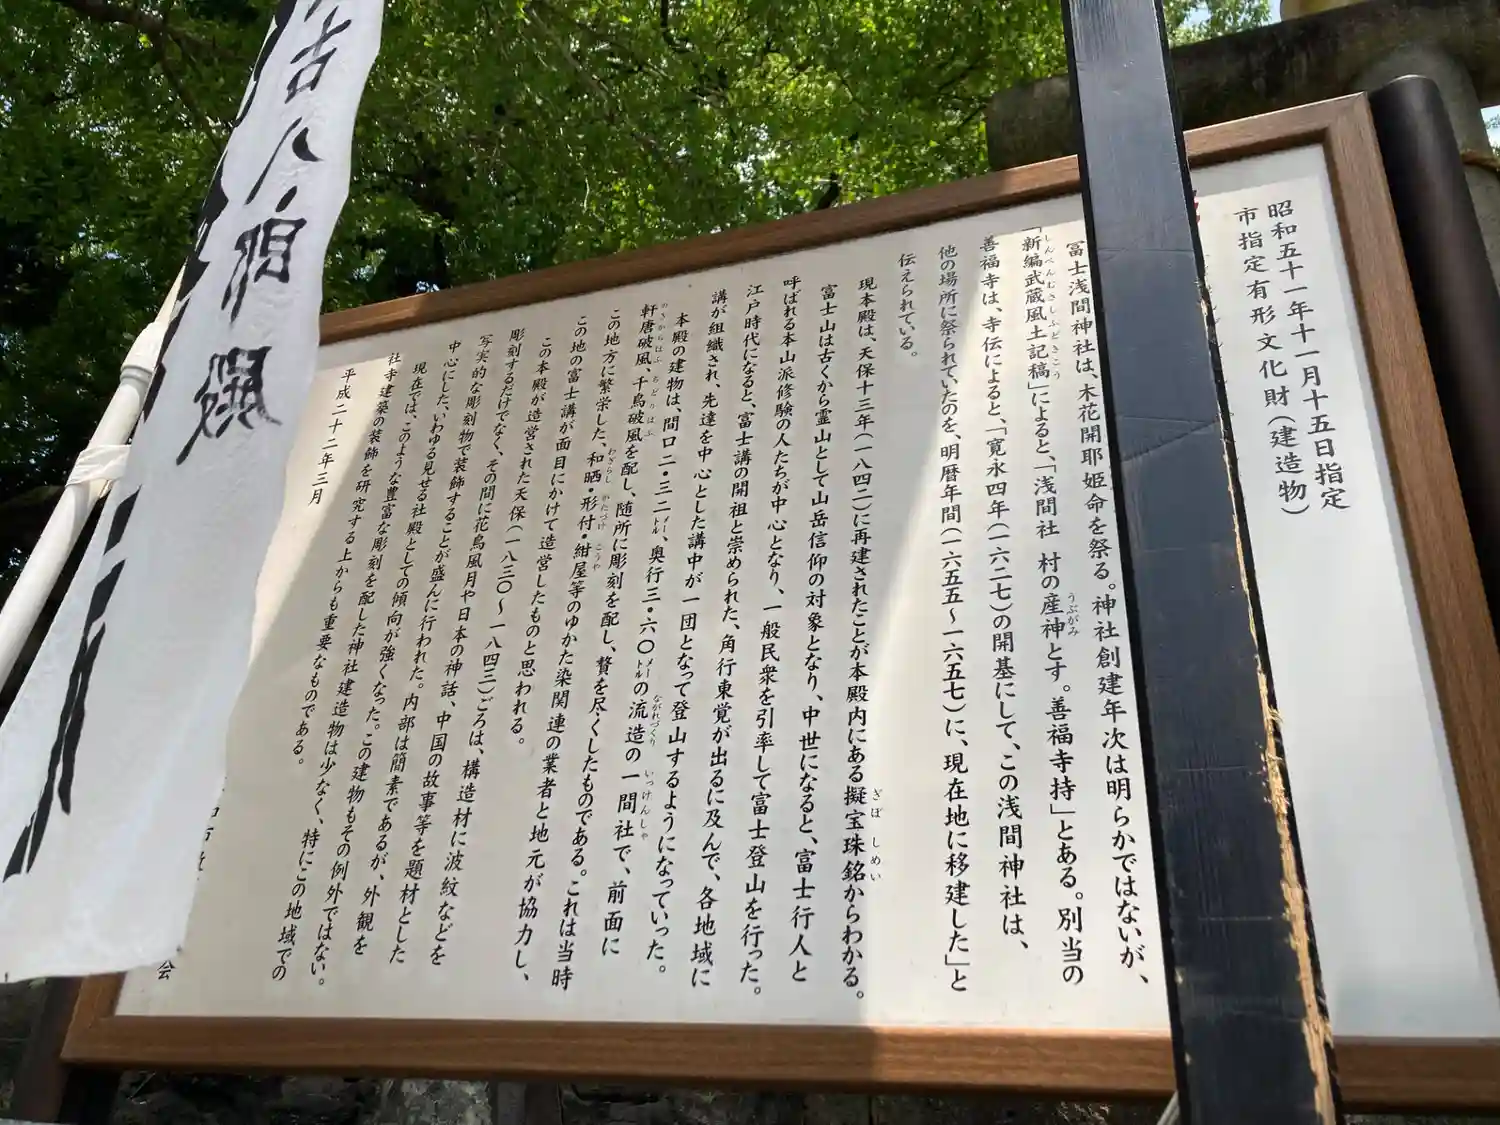 昭和五十一年十一月十五日指定
市指定有形文化財(建造物)
富士浅間神社は、木花開耶姫命を祭る。神社創建年次は明らかではないが、
「新編武蔵風土記稿」によると、「浅間社 村の産神とす。善福寺持」とある。別当の
善福寺は、寺伝によると、「寛永四年(一六二七)の開基にして、この浅間神社は、
他の場所に祭られていたのを、明暦年間(一六五五~一六五七)に、現在地に移建した」と
伝えられている。
現本殿は、天保十三年(一八四二)に再建されたことが本殿内にある擬宝珠銘からわかる。
富士山は古くから霊山として山岳信仰の対象となり、中世になると、富士行人と
呼ばれる本山派修験の人たちが中心となり、一般民衆を引率して富士登山を行った。
江戸時代になると、富士講の開祖と崇められた、角行東覚が出るに及んで、各地域に
講が組織され、先達を中心とした講中が一団となって登山するようになっていった。
本殿の建物は、間口二・三二メートル、奥行三・六〇メートルの流造の一間社で、前面に
軒唐破風、千鳥破風を配し、随所に彫刻を配し、贅を尽くしたものである。これは当時
この地方に繁栄した、和晒・形付・紺屋等のゆかた染関連の業者と地元が協力し、
この地の富士講が面目にかけて造営したものと思われる。
この本殿が造営された天保(一八三〇~一八四三)ごろは、構造材に波紋などを
彫刻するだけでなく、その間に花鳥風月や日本の神話、中国の故事等を題材とした
写実的な彫刻物で装飾することが盛んに行われた。内部は簡素であるが、外観を
中心にした、いわゆる見せる社殿としての傾向が強くなった。この建物もその例外ではない。
現在では、このような豊富な彫刻を配した神社建造物は少なく、特にこの地域での
社寺建築の装飾を研究する上からも重要なものである。
平成二十二年三月
会